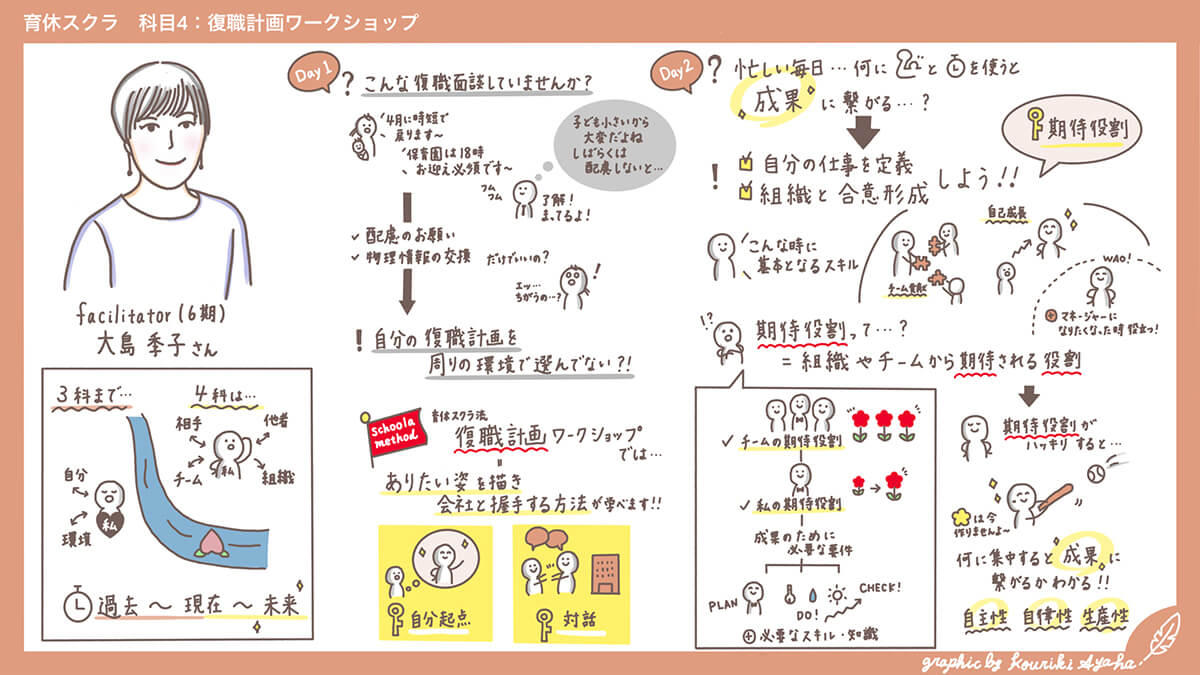 育休スクラ 科目4：復職計画ワークショップ
facilitator(6期)
大島 季子さん
3科まで…
4科は…
相手
他者
私
チーム
組織
自分
私
環境
過去〜現在〜未来
Day1
? こんな復職面談していませんか?
4月に時短で
戻ります〜
保育園は18時
お迎え必須です〜
子ども小さいから
大変だよね
しばらくは
配慮しないと…
フム
フム
了解!
まってるよ!
✓ 配慮のお願い
✓ 物理情報の交換
だけでいいの?
エッ…
ちがうの…?
!
! 自分の復職計画を
周りの環境で選んでない?!
Schoola
method
育休スクラ流
復職計画ワークショップ
では…
=
ありたい姿を描き
会社と握手する方法が学べます!!
自分起点
対話
Day2
? 忙しい毎日…何に と を使うと
成果に繋がる…?
期待役割
!
自分の仕事を定義
組織と合意形成
しよう!!
こんな時に
基本となるスキル
チーム貢献
自己成長
WAO!
+マネージャーに
なりたくなった時役立つ!
!?
期待役割って…?
=組織やチームから期待される役割
✓ チームの期待役割
✓ 私の期待役割
成果のために
必要な要件
PLAN
DO!
CHECK!
+必要なスキル・知識
期待役割が
ハッキリすると…
は今
作りませんよ〜
何に集中すると成果に
繋がるかわかる!!
自主性 自律性 生産性
graphic by Kouriki Ayaha.